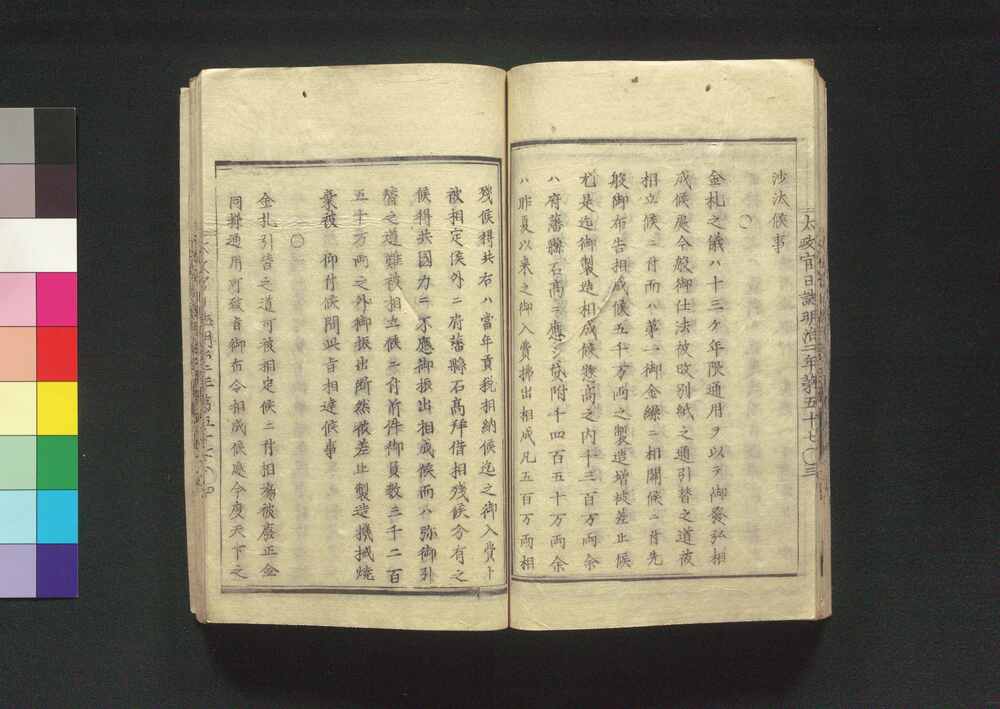 太政官日誌明治二年第五十七〇三
沙汰候事
〇
金札之儀ハ十三ケ年限通用ヲ以テ御發弘相
成候處今般御仕法被改別紙之通引替之道被
相立候ニ付而ハ第一御金繰ニ相關候ニ付先
般御布告相成候五千万両之製造增被差止候
尤是迄御製造相成候惣高之内千三百万両余
ハ府藩縣石高ニ應シ貸附千四百五十万両余
ハ昨夏以来之御入費拂出相成凡五百万両相
残候得共右ハ當年貢税相納候迄之御入費ト
被相定候外ニ府藩縣石高拜借相残候分有之
候得共國力ニ不應御振出相成候而ハ弥御引
替之道難被相立候ニ付前件御員数三千二百
五十万両之外御振出断然被差止製造機械焼
棄被　仰付候間此旨相達候事
〇
金札引替之道可被相定候ニ付相場被廢正金
同様通用可致旨御布令相成候處今度天下之